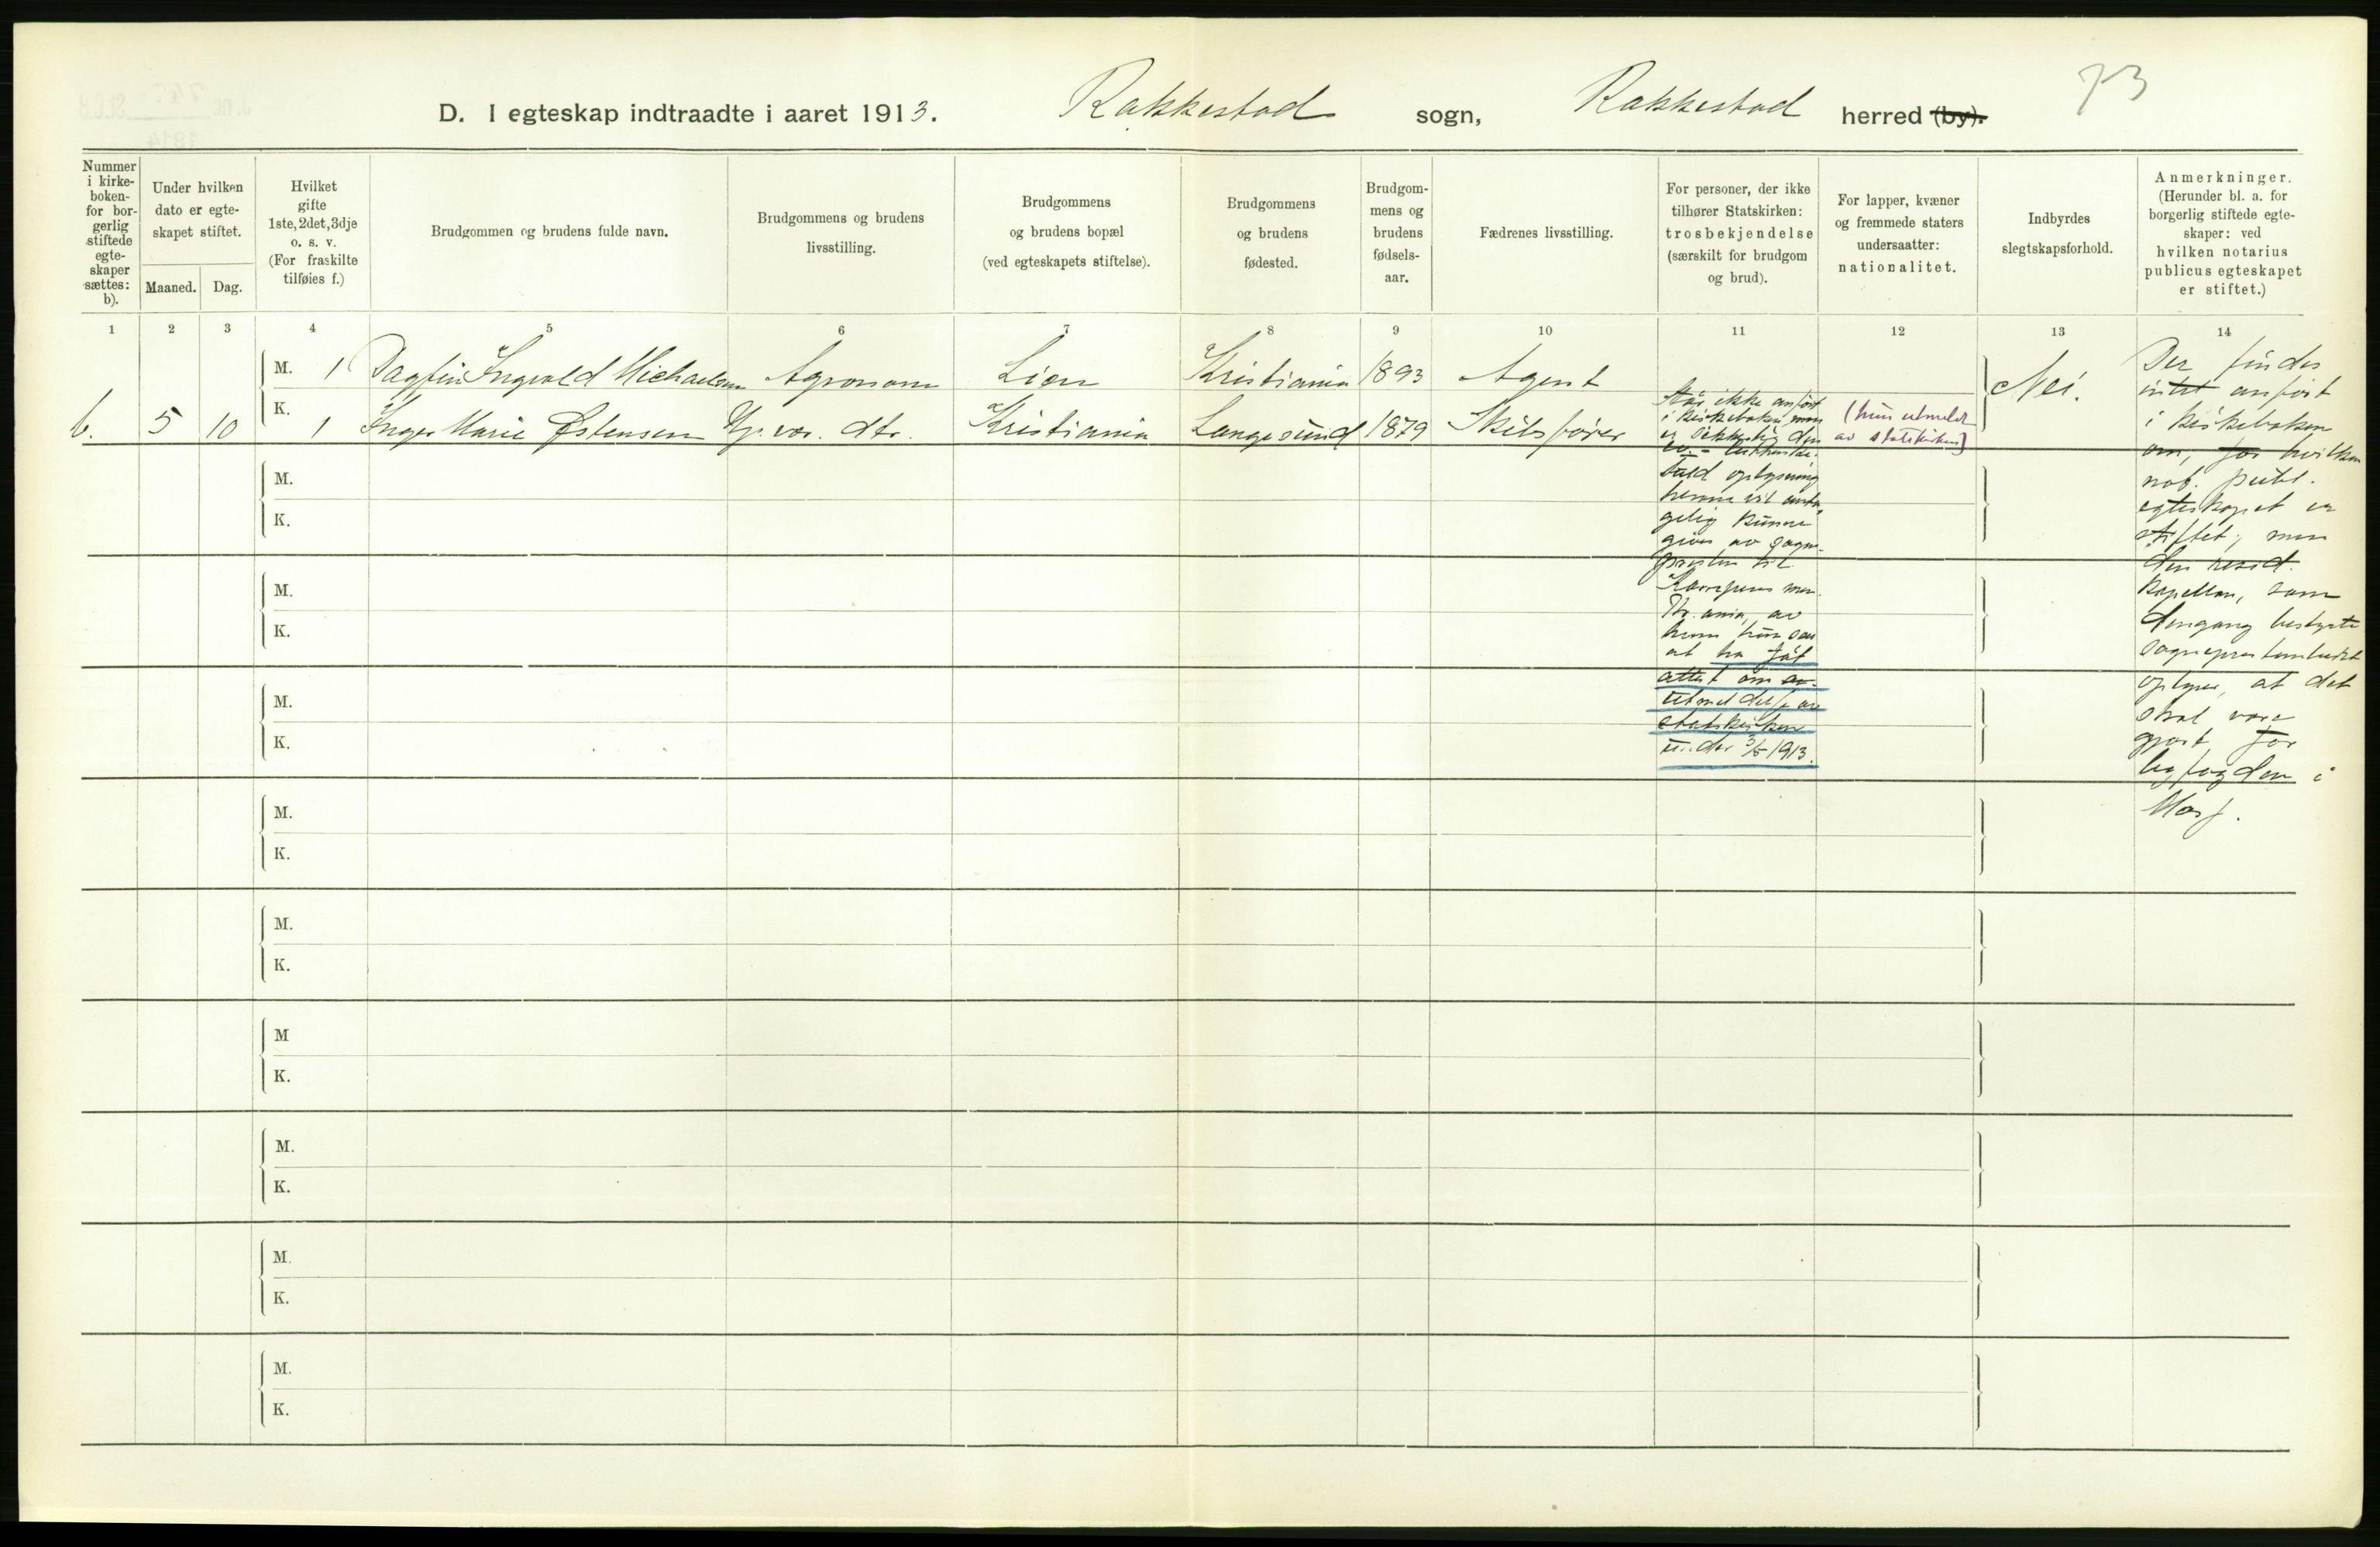 73
D. I egteskap indtraadte i aaret 1913. Rakkestad sogn, Rakkestad herred (by).
Nummer i kirke-boken- for bor-gerlig stiftede egte-skaper sættes: b).
Under hvilken dato er egte-skapet stiftet.
Maaned. Dag.
Hvilket gifte 1ste, 2det, 3dje o. s. v. (For fraskilte tilføies f.)
Brudgommen og brudens fulde navn.
Brudgommens og brudens livsstilling.
Brudgommens og brudens bopæl (ved egteskapets stiftelse).
Brudgommens og brudens fødested.
Brudgom-mens og brudens fødsels-aar.
Fædrenes livsstilling.
For personer, der ikke tilhører Statskirken: trosbekjendelse (særskilt for brudgom og brud).
For lapper, kvæner og fremmede staters undersaatter: nationalitet.
Indbyrdes slegtskapsforhold.
Anmerkninger. (Herunder bl. a. for borgerlig stiftede egte-skaper: ved hvilken notarius publicus egteskapet er stiftet.)
1 2 3 4 5 6 7 8 9 10 11 12 13 14
M. 1 Dagfin Ingvald Michaelsen Agronom Lier Kristiania 1893 Agent Nei.
b. 5 10 K. 1 Inger Marie Østensen Kristiania Langesund 1879 Skibsfører
Står ikke anført
i kirkeboken, men
fuld oplysning
gelig kunne
gives av sogne-
presten til
Kr.ania, av
at ha fåt
attest om
utmeldelse av
statskirken
under 3/5 1913.
(hun utmeldt
av statskirken)
Der findes
intet anført
i kirkeboken
om, for hvilken
not. publ.
egteskapet er
stiftet; men
den resid.
kapellan, som
dengang bestyrte
sogneprestembedet
oplyser, at det
skal være
gjort for
byfogden i
Moss.
M.
K.
M.
K.
M.
K.
M.
K.
M.
K.
M
K.
M.
K.
M.
K.
M.
K.